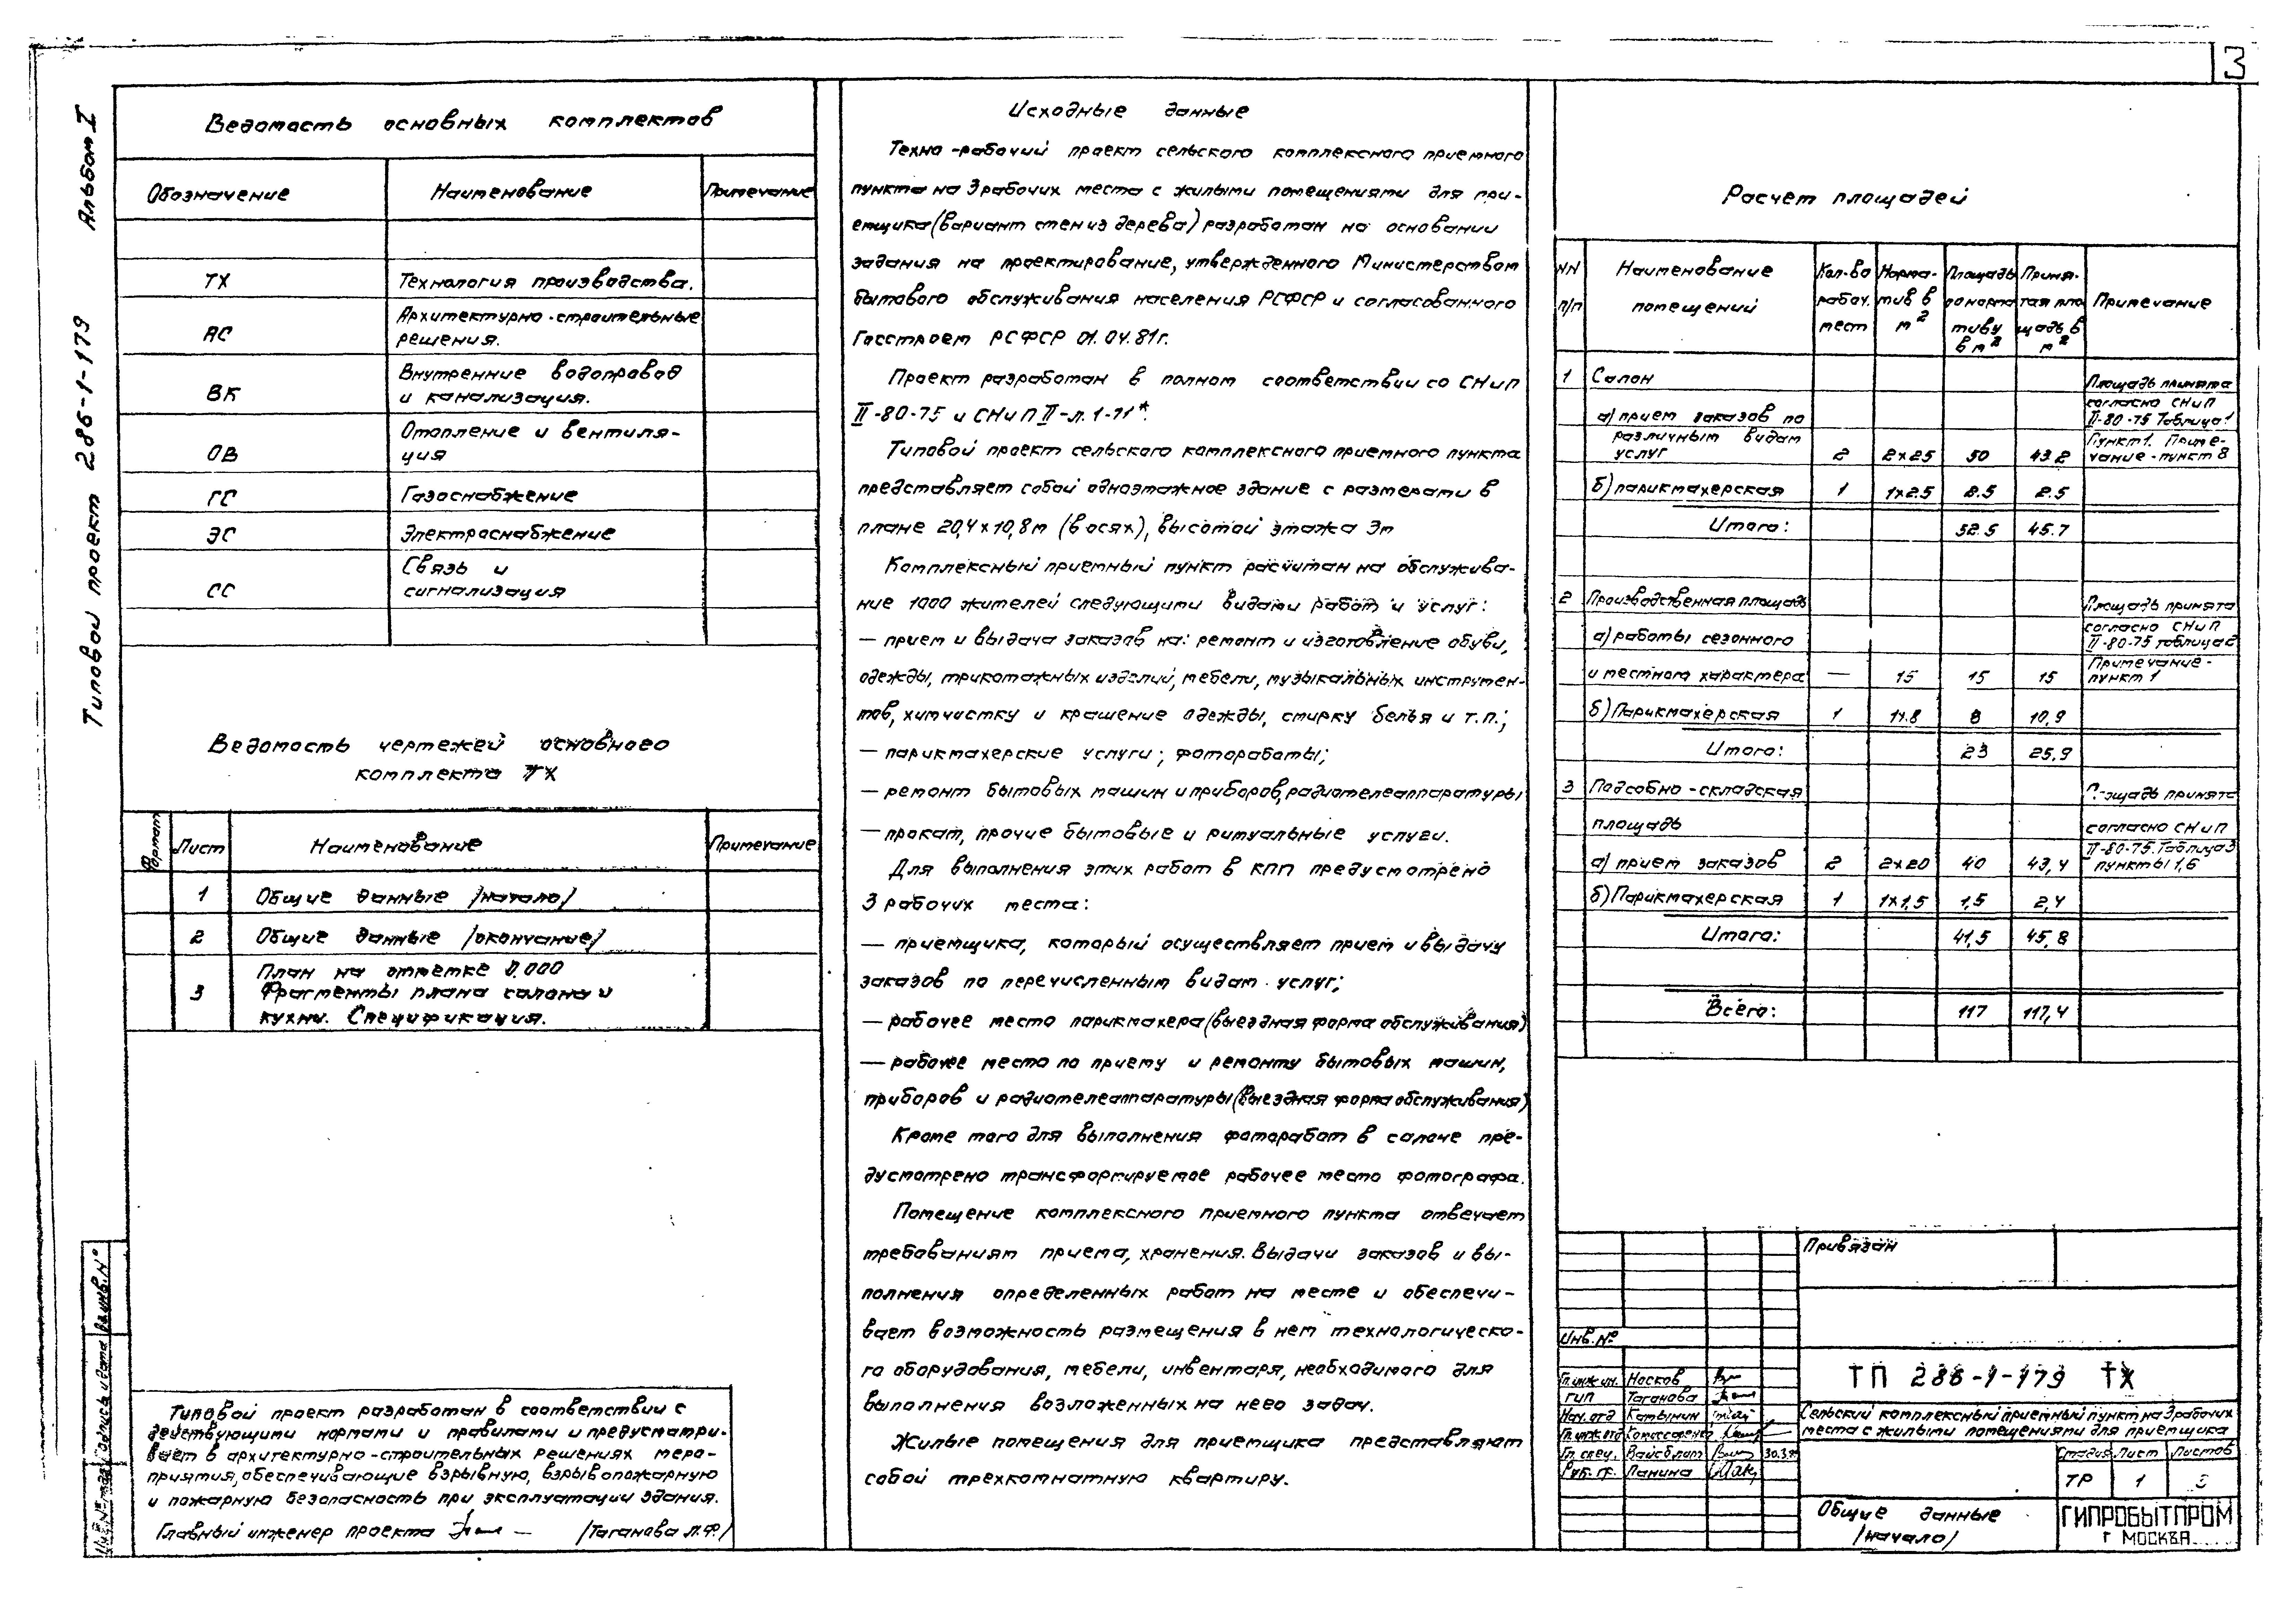 3
Альбом I
Типовой проект 286-1-179
Ведомость основных комплектов
Обозначение Наименование Примечание
ТХ Технология производства.
АС Архитектурно-строительные
решения.
ВК Внутренние водопровод
и канализация.
ОВ Отопление и вентиля-
ция
ГС Газоснабжение
ЭС Электроснабжение
СС Связь и
сигнализация
Ведомость чертежей основного
комплекта ТХ
Формат Лист Наименование Примечание
1 Общие данные /начало/
2 Общие данные /окончание/
3 План на отметке 0.000
Фрагменты плана салона и
кухни. Спецификация.
Типовой проект разработан в соответствии с
действующими нормами и правилами и предусматри-
вает в архитектурно-строительных решениях меро-
приятия, обеспечивающие взрывную, взрывопожарную
и пожарную безопасность при эксплуатации здания.
Главный инженер проекта /Таганова Л.Ф./
Исходные данные
Техно-рабочий проект сельского комплексного приемного
пункта на 3 рабочих места с жилыми помещениями для при-
емщика (вариант стен из дерева) разработан на основании
задания на проектирование, утвержденного Министерством
бытового обслуживания населения РСФСР и согласованного
Госстроем РСФСР 01.04.81г.
Проект разработан в полном соответствии со СНиП
II-80-75 и СНиП II-л.1-71*.
Типовой проект сельского комплексного приемного пункта
представляет собой одноэтажное здание с размерами в
плане 20,4х10,8м (в осях), высотой этажа 3м
Комплексный приемный пункт расчитан на обслужива-
ние 1000 жителей следующими видами работ и услуг:
— прием и выдача заказов на: ремонт и изготовление обуви,
одежды, трикотажных изделий, мебели, музыкальных инструмен-
тов, химчистку и крашение одежды, стирку белья и т.п.;
— парикмахерские услуги; фотоработы;
— ремонт бытовых машин и приборов, радиотелеаппаратуры
— прокат, прочие бытовые и ритуальные услуги.
Для выполнения этих работ в КПП предусмотрено
3 рабочих места:
— приемщика, который осуществляет прием и выдачу
заказов по перечисленным видам услуг;
— рабочее место парикмахера (выездная форма обслуживания)
— рабочее место по приему и ремонту бытовых машин,
приборов и радиотелеаппаратуры (выездная форма обслуживания)
Кроме того для выполнения фоторабот в салоне пре-
дусмотрено трансформируемое рабочее место фотографа.
Помещение комплексного приемного пункта отвечает
требованиям приема, хранения. Выдачи заказов и вы-
полнения определенных работ на месте и обеспечи-
вает возможность размещения в нем технологическо-
го оборудования, мебели, инвентаря, необходимого для
выполнения возложенных на него задач.
Жилые помещения для приемщика представляют
собой трехкомнатную квартиру.
Расчет площадей
NN Наименование Кол-во Норма- Площадь Приня-
п/п помещений рабоч. тив в по норма тая пло Примечание
мест м2 тиву щадь в
в м2 м2
1 Салон Площадь принята
согласно СНиП
а) прием заказов по II-80-75 Таблица 1
различным видам Пункт 1. Приме-
услуг 2 2х25 50 43.2 чание - пункт 8
б) парикмахерская 1 1х2.5 2.5 2.5
Итого: 52.5 45.7
2 Производственная площадь Площадь принята
согласно СНиП
а) работы сезонного II-80-75 таблица 2
и местного характера — 15 15 15 Примечание -
пункт 1
б) Парикмахерская 1 1х8 8 10,9
Итого: 23 25,9
3 Подсобно-складская Площадь принята
площадь согласно СНиП
II-80-75. Таблица 3
а) прием заказов 2 2х20 40 43,4 пункты 1,6
б) Парикмахерская 1 1х1,5 1,5 2,4
Итого: 41,5 45,8
Всего: 117 117,4
Привязан
Инв. №
Гл.инж.ин. Носков
ГИП Таганова
Нач.отд Катынин
Гл.инж.отд
Гл.спец. Вайсблат 30.3
Рук. гр. Панина
ТП 286-1-179 ТХ
Сельский комплексный приемный пункт на 3 рабочих
места с жилыми помещениями для приемщика
Стадия Лист Листов
ТР 1 3
Общие данные
/начало/
ГИПРОБЫТПРОМ
г МОСКВА
Взам.инв.№
Подпись и дата
Инв.№ подл.